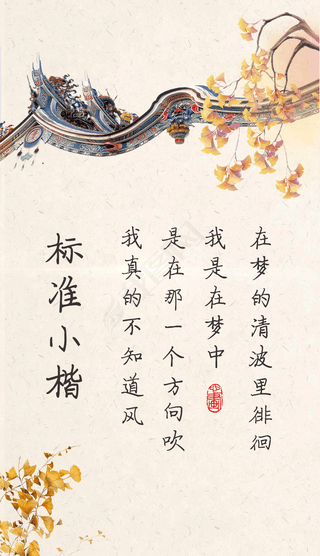 标准小楷
我真的不知道风
是在那一个方向吹
我是在梦中
在梦的清波里徘徊